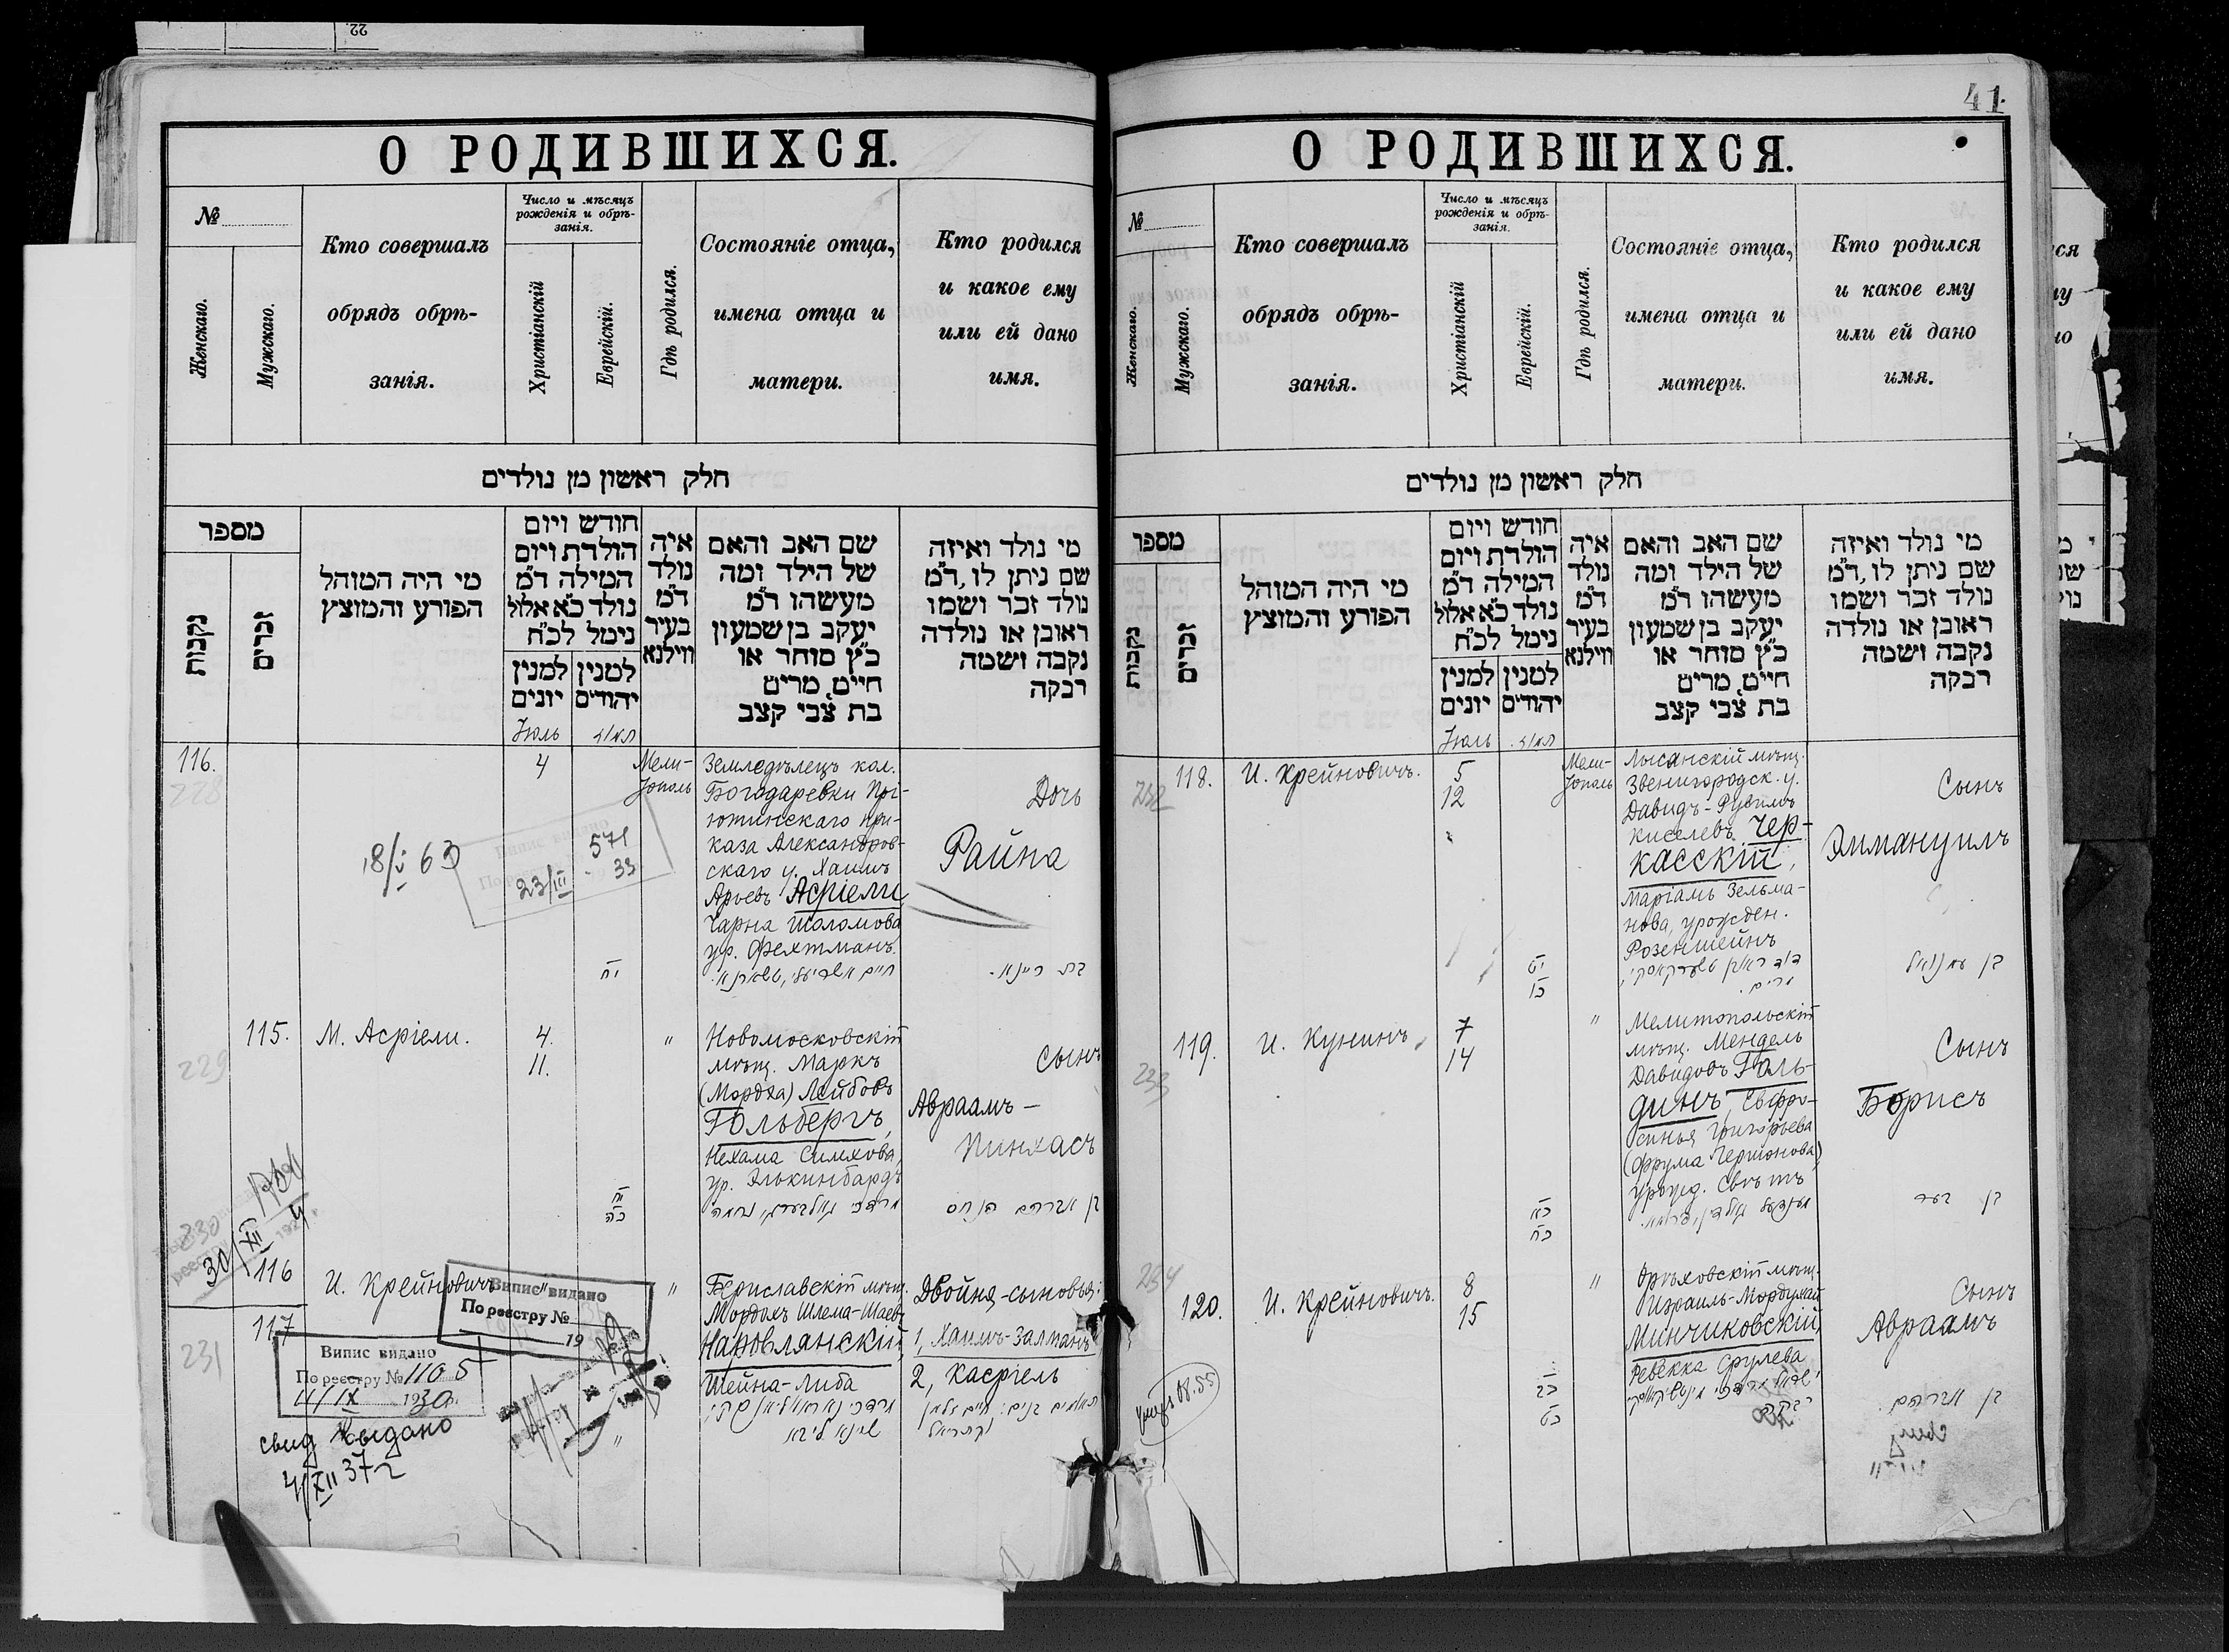 22
О РОДИВШИХСЯ.
№
Женскаго.
Мужскаго.
Кто совершалъ
обрядъ обрѣ-
занія.
Число и мѣсяцъ
рожденія и обрѣ-
занія.
Христіанскій
Еврейскій.
Гдѣ родился.
Состояніе отца,
имена отца и
матери.
Кто родился
и какое ему
или ей дано
имя.
חלק ראשון מן נולדים
מספר
נקבות
זכרים
מי היה המוהל
הפורע והמוצץ
חודש ויום
הולדת ויום
המילה ד"מ
נולד כ"א אלול
נימל לכ"ח
למנין
יונים
למנין
יהודים
איה
נולד
ד"מ
בעיר
ווילנא
שם האב והאם
של הילד ומה
מעשהו ד"מ
יעקב בן שמעון
כ"ץ סוחר או
חייט, מרים
בת צבי קצב
מי נולד ואיזה
שם ניתן לו, ד"מ
נולד זכר ושמו
ראובן או נולדה
נקבה ושמה
רבקה
Іюль
תמוז
116.
228
4
Мели-
тополь
Земледѣлецъ кол.
Богодаревки Прі-
ютинскаго при-
каза Александров-
скаго у. Хаимъ
Арьевъ Асріели,
Чарна Шоломова
ур. Фехтманъ.
Дочь
Райна
18/V 63
571
23/III 33
יח
חיים אשריאלי, טשארנא.
בת ריינא.
115.
229
М. Асріели.
4.
11.
"
Новомосковскій
мѣщ. Маркъ
(Мордха) Лейбовъ
Гольбергъ,
Нехама Симхова,
ур. Элькинбардъ
Сынъ
Авраамъ-
Пинхасъ
יח
כה
מרדכי גאלבערג, נחמה
בן אברהם פנחס
230
30/XII
116
И. Крейновичъ
"
"
Бериславскій мѣщ.
Мордохъ Шлема-Шаев.
Наровлянскій,
Шейна-Либа
Двойня-сыновья:
1, Хаимъ-Залманъ
2, Касріель
שיינא ליבא
Випис видано
По реєстру №
19
117
231
Випис видано
По реєстру № 1105
11/IX 1930 р.
свид выдано
4/XII 37 г
"
41.
О РОДИВШИХСЯ.
№
Женскаго.
Мужскаго.
Кто совершалъ
обрядъ обрѣ-
занія.
Число и мѣсяцъ
рожденія и обрѣ-
занія.
Христіанскій
Еврейскій.
Гдѣ родился.
Состояніе отца,
имена отца и
матери.
Кто родился
и какое ему
или ей дано
имя.
חלק ראשון מן נולדים
מספר
נקבות
זכרים
מי היה המוהל
הפורע והמוצץ
חודש ויום
הולדת ויום
המילה ד"מ
נולד כ"א אלול
נימל לכ"ח
למנין
יונים
למנין
יהודים
איה
נולד
ד"מ
בעיר
ווילנא
שם האב והאם
של הילד ומה
מעשהו ד"מ
יעקב בן שמעון
כ"ץ סוחר או
חייט, מרים
בת צבי קצב
מי נולד ואיזה
שם ניתן לו, ד"מ
נולד זכר ושמו
ראובן או נולדה
נקבה ושמה
רבקה
Іюль
תמוז.
232
118.
И. Крейновичъ.
5
12
Мели-
тополь
Лысянскій мѣщ.
Звенигородск. у.
Давидъ-Рувимъ
Киселевъ Чер-
касскій,
Маріамъ Зельма-
нова, урожден.
Розенштейнъ
Сынъ
Эммануилъ
יט
כו
דוד ראובן טשערקאסקי,
מרים.
בן עמנואל
233
119.
И. Кунинъ
7
14
"
Мелитопольскій
мѣщ. Мендель
Давидовъ Голь-
динъ, Евфро-
синья Григорьева
(Фрума Гершонова),
урожд. Свѣтъ
Сынъ
Борисъ
כא
כח
מענדעל גאלדין, פרומא.
בן בער
234
120.
И. Крейновичъ.
8
15
"
Орѣховскій мѣщ.
Израиль-Мордухай
Минчиковскій,
Ревекка Срулева
Сынъ
Авраамъ
כב
כט
רבקה
בן אברהם.